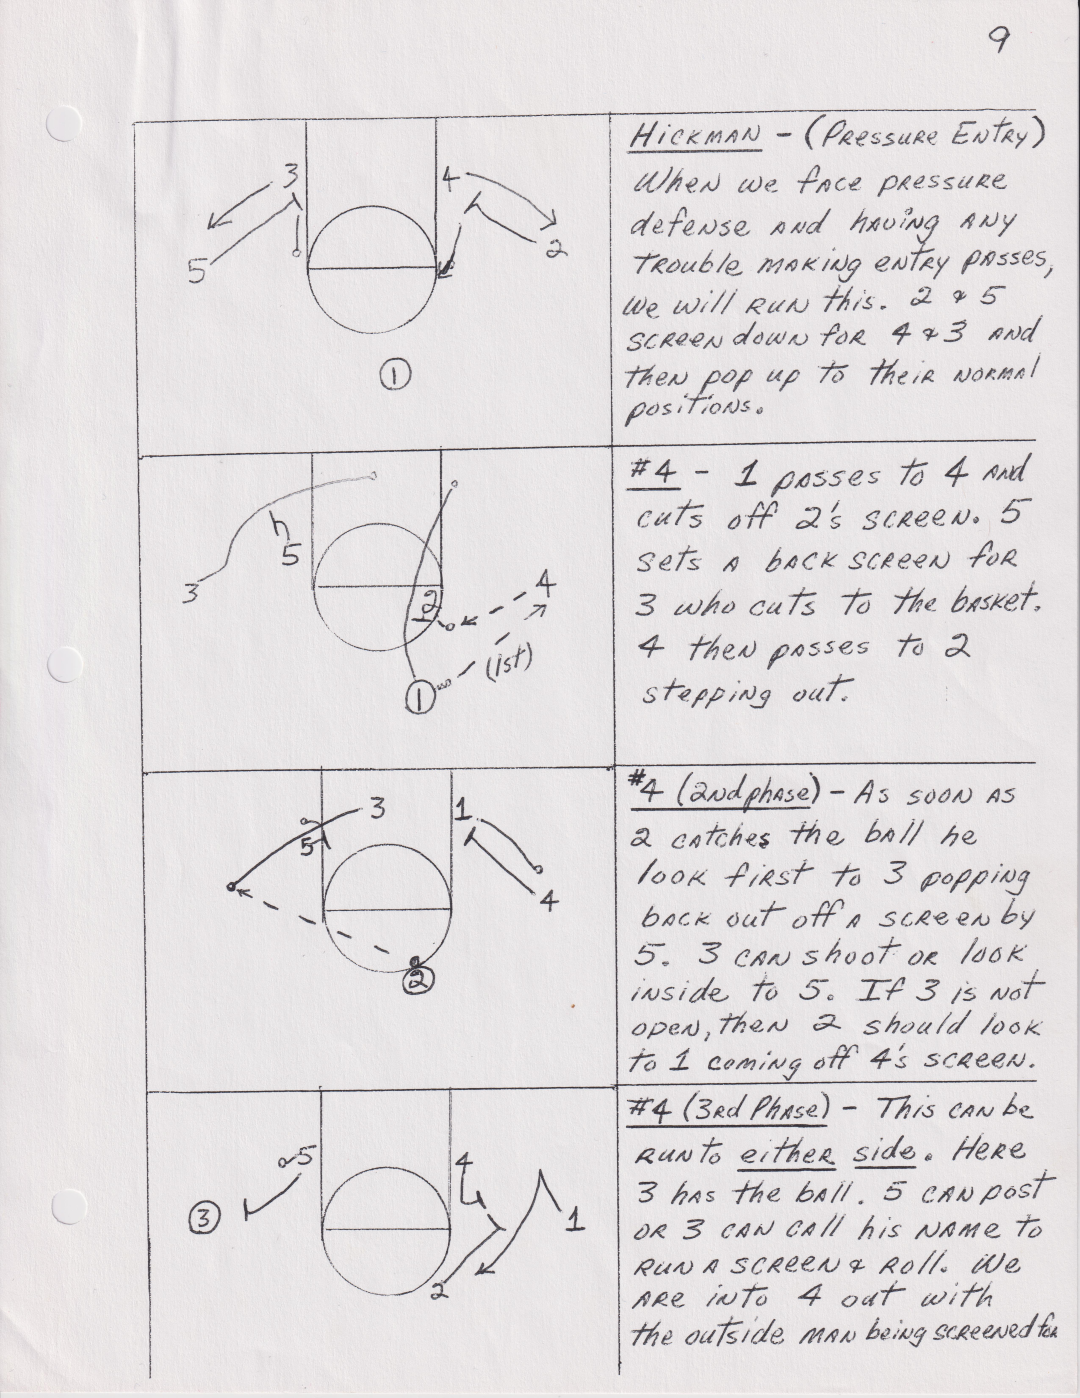 9
3
4
5
2
1
Hickman - (Pressure Entry)
When we face pressure
defense and having any
trouble making entry passes,
we will run this. 2 & 5
screen down for 4 & 3 and
then pop up to their normal
positions.
5
3
4
2
(1st)
1
#4 - 1 passes to 4 and
cuts off 2's screen. 5
sets a back screen for
3 who cuts to the basket.
4 then passes to 2
stepping out.
3
1
5
4
2
#4 (2nd phase) - As soon as
2 catches the ball he
look first to 3 popping
back out off a screen by
5. 3 can shoot or look
inside to 5. If 3 is not
open, then 2 should look
to 1 coming off 4's screen.
5
4
3
1
2
#4 (3rd Phase) - This can be
run to either side. Here
3 has the ball. 5 can post
or 3 can call his name to
run a screen & roll. We
are into 4 out with
the outside man being screened for